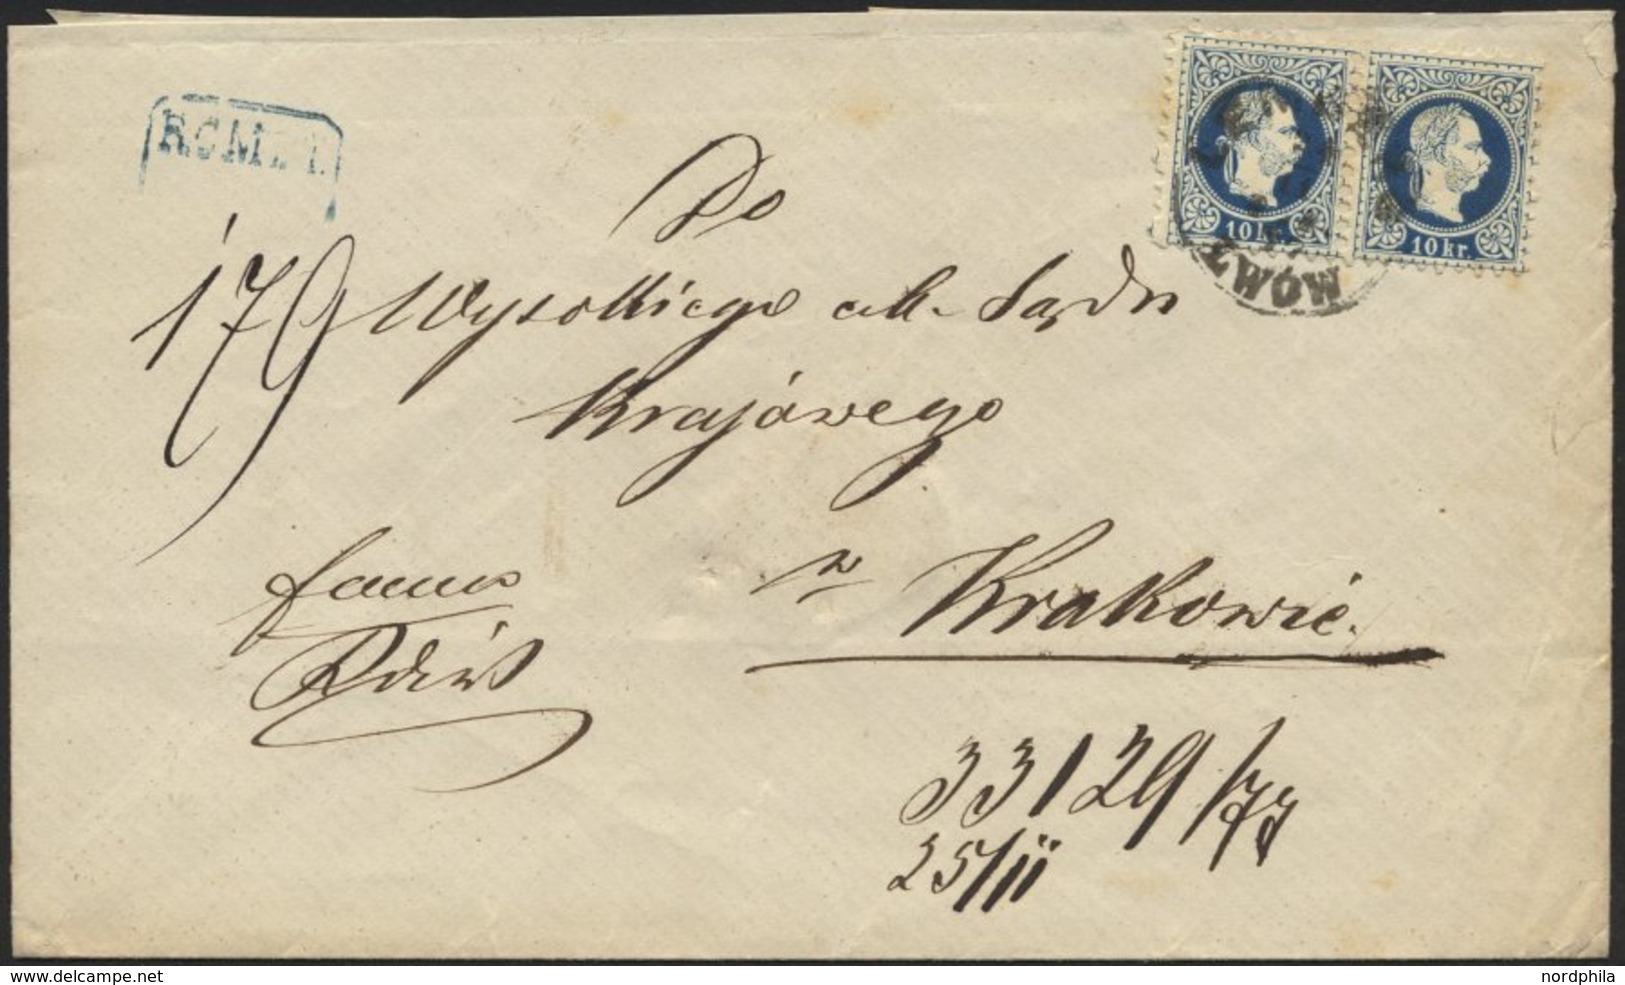 10 kr.
10 kr.
LWÓW
Do
179 Wysokiego c.k. Sądu
Krajowego
w Krakowie.
33129/77
25/11
www.delcampe.net
nordphila